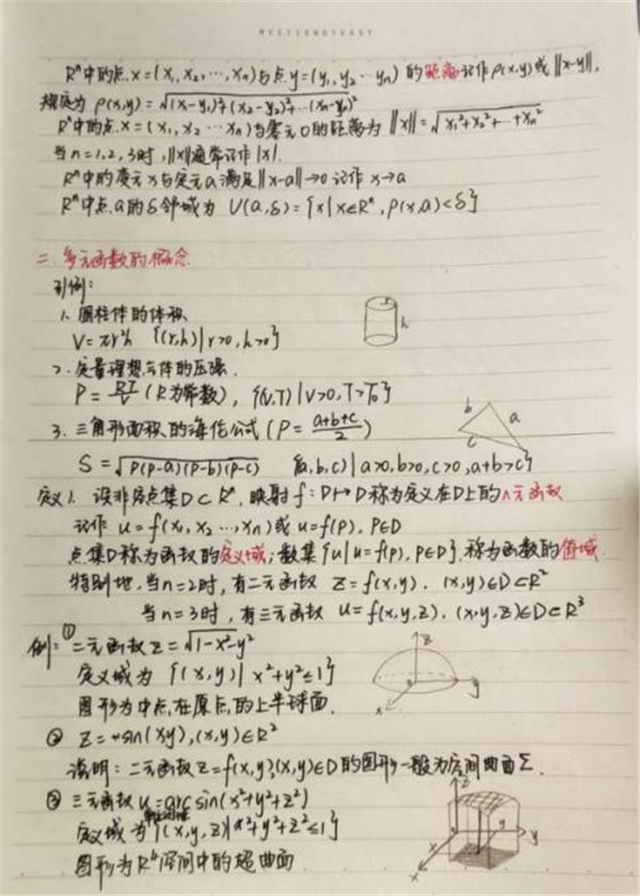 MEETISNOTEASY
Rⁿ中的点x=(x₁,x₂,…,xₙ)与点y=(y₁,y₂…yₙ)的距离记作ρ(x,y)或‖x-y‖,
规定为ρ(x,y)=√(x₁-y₁)²+(x₂-y₂)²+…(xₙ-yₙ)²
Rⁿ中的点x=(x₁,x₂…xₙ)与零元0的距离为‖x‖=√x₁²+x₂²+…+xₙ²
当n=1,2,3时,‖x‖通常记作|x|.
Rⁿ中的变元x与定元a满足‖x-a‖→0记作x→a
Rⁿ中点a的δ邻域为U(a,δ)={x|x∈Rⁿ,ρ(x,a)<δ}
二.多元函数的概念
引例:
1.圆柱体的体积
V=πr²h {(r,h)|r>0,h>0}
r
h
2.定量理想气体的压强.
P=RT/V(R为常数),{(V,T)|V>0,T>T₀}
3.三角形面积的海伦公式(P=(a+b+c)/2)
b
a
c
S=√P(P-a)(P-b)(P-c) {(a,b,c)|a>0,b>0,c>0,a+b>c}
定义1.设非空点集D⊂Rⁿ,映射f:D↦D称为定义在D上的n元函数
记作u=f(x₁,x₂…,xₙ)或u=f(P),P∈D
点集D称为函数的定义域;数集{u|u=f(P),P∈D}.称为函数的值域.
特别地,当n=2时,有二元函数z=f(x,y),(x,y)∈D⊂R²
当n=3时,有三元函数u=f(x,y,z),(x,y,z)∈D⊂R³
例:①二元函数z=√1-x²-y²
定义域为{(x,y)|x²+y²≤1}
图形为中点在原点的上半球面.
z
y
x
②z=sin(xy),(x,y)∈R²
说明:二元函数z=f(x,y),(x,y)∈D的图形一般为空间曲面Σ.
③三元函数u=arcsin(x²+y²+z²)
定义域为{(x,y,z)|x²+y²+z²≤1}
图形为R⁴空间中的超曲面
z
y
x